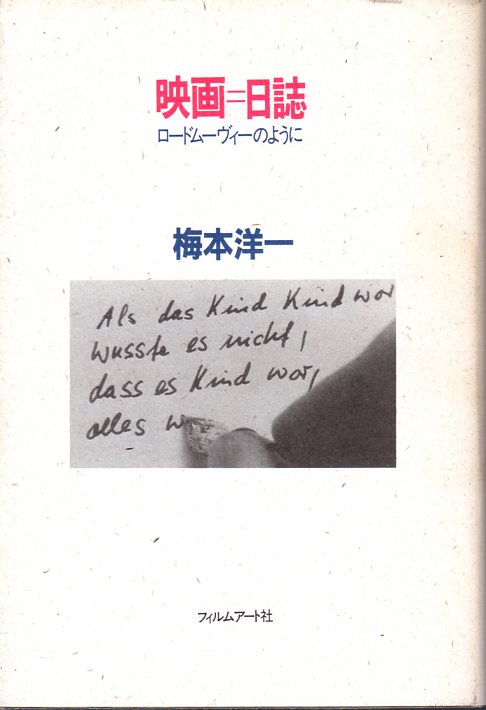 映画=日誌
ロードムーヴィーのように
梅本洋一
Als das Kind Kind war
wusste es nicht,
dass es Kind war,
alles w
フィルムアート社